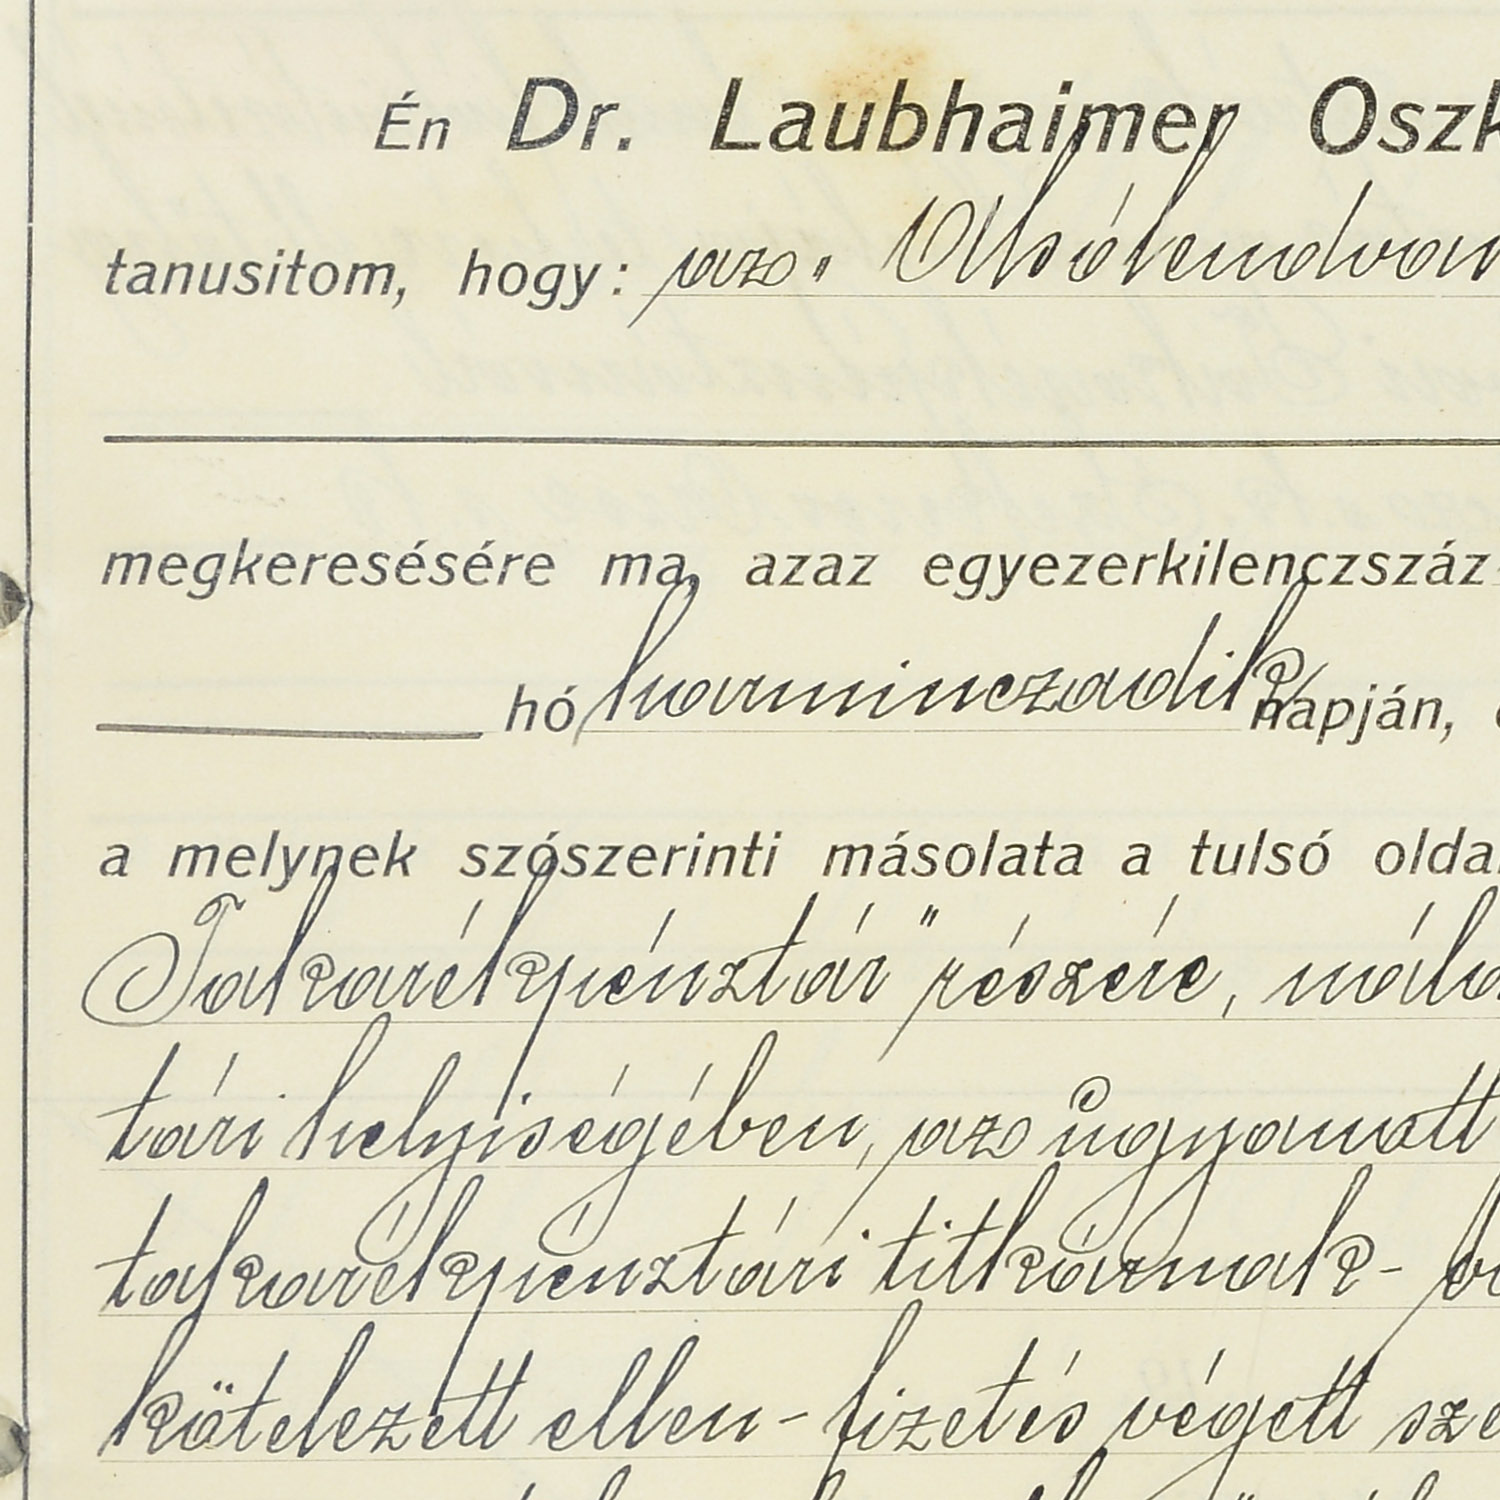 Én Dr. Laubhaimer Oszk
tanusitom, hogy: az „Alsólendvai
megkeresésére ma, azaz egyezerkilenczszáz-
hó harminczadik napján,
a melynek szószerinti másolata a tulsó olda
Takarékpénztár" részére, nála
tári helyiségében, az ugyanott
takarékpénztári titkárnak-
kötelezett ellen - fizetés végett sze